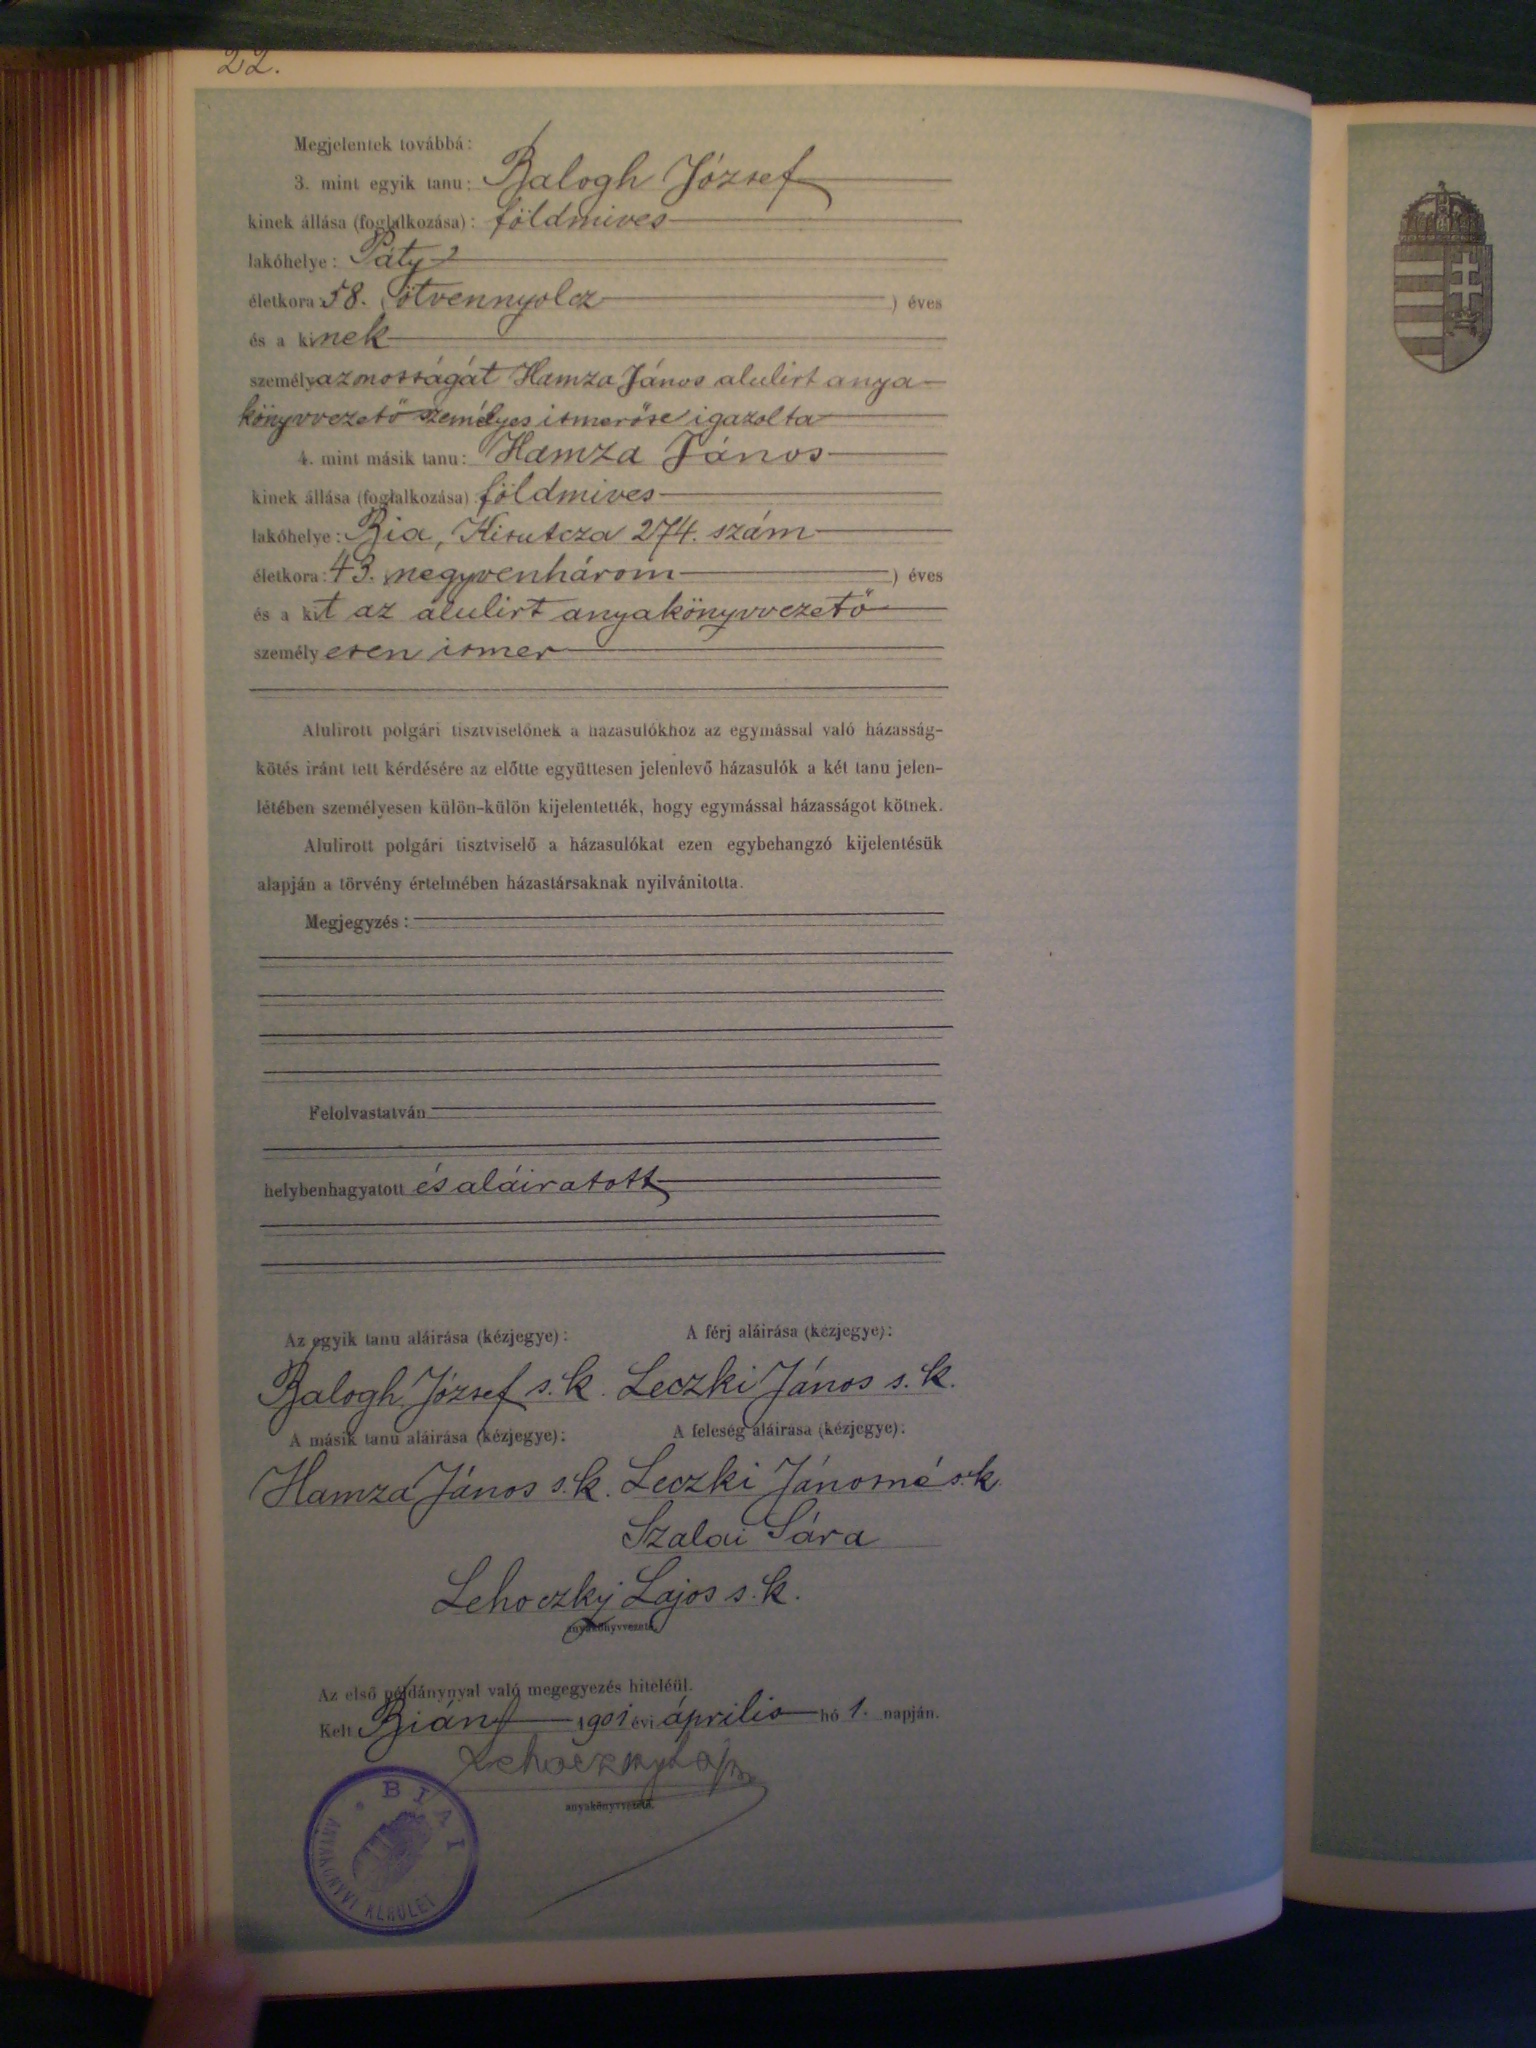 22.
Megjelentek továbbá:
3. mint egyik tanu: Balogh József
kinek állása (foglalkozása): földmives
lakóhelye: Páty
életkora: 58. (ötvennyolcz ) éves
és a kinek
személyazonosságát Hamza János alulirt anya-
könyvvezető személyes ismerőse igazolta
4. mint másik tanu: Hamza János
kinek állása (foglalkozása): földmives
lakóhelye: Bia, Kisutcza 274. szám
életkora: 43. negyvenhárom ) éves
és a kit az alulirt anyakönyvvezető
személyesen ismer
Alulirott polgári tisztviselőnek a házasulókhoz az egymással való házasság-
kötés iránt tett kérdésére az előtte együttesen jelenlevő házasulók a két tanu jelen-
létében személyesen külön-külön kijelentették, hogy egymással házasságot kötnek.
Alulirott polgári tisztviselő a házasulókat ezen egybehangzó kijelentésük
alapján a törvény értelmében házastársaknak nyilvánitotta.
Megjegyzés:
Felolvastatván
helybenhagyatott és aláiratott
Az egyik tanu aláirása (kézjegye): A férj aláirása (kézjegye):
Balogh József s.k. Leczki János s.k.
A másik tanu aláirása (kézjegye): A feleség aláirása (kézjegye):
Hamza János s.k. Leczki Jánosné s.k.
Szalai Sára
Lehoczky Lajos s.k.
anyakönyvvezető.
Az első példánynyal való megegyezés hiteléül.
Kelt Bián 1901 évi április hó 1. napján.
Lehoczky Lajos
anyakönyvvezető.
BIAI
ANYAKÖNYVI KERÜLET